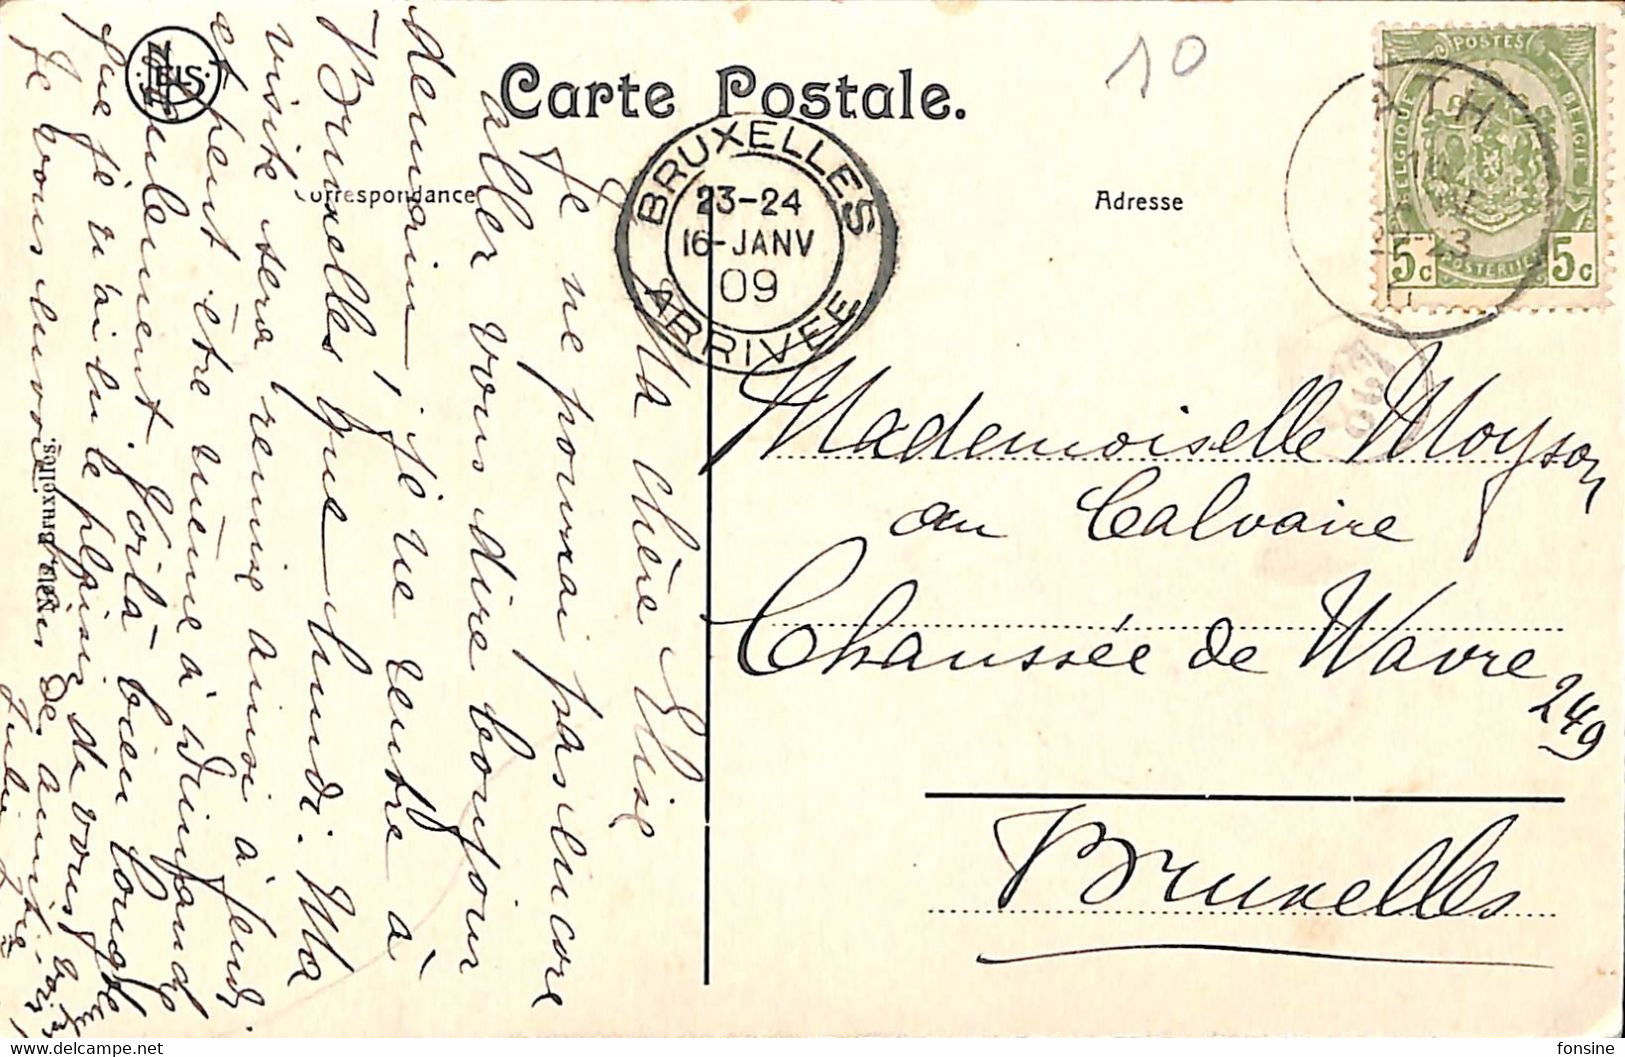 Carte Postale.
Correspondance
Adresse
10
BRUXELLES
23-24
16-JANV
09
ARRIVEE
ATH
POSTES
BELGIQUE
BELGIË
POSTERIJEN
5c 5c
Mademoiselle Moyson
au Calvaire
Chaussée de Wavre
249
Bruxelles
Ma chère Elise
Je ne pourrai pas encore
aller vous dire bonjour
demain, je ne rentre à
Bruxelles que lundi. Ma
visite sera remise ainsi à jeudi
et peut être même à Dimanche
seulement. Voilà bien longtemps
que je n'ai eu le plaisir de vous
Je vous envoie
Nels, Bruxelles.
fonsine
delcampe.net